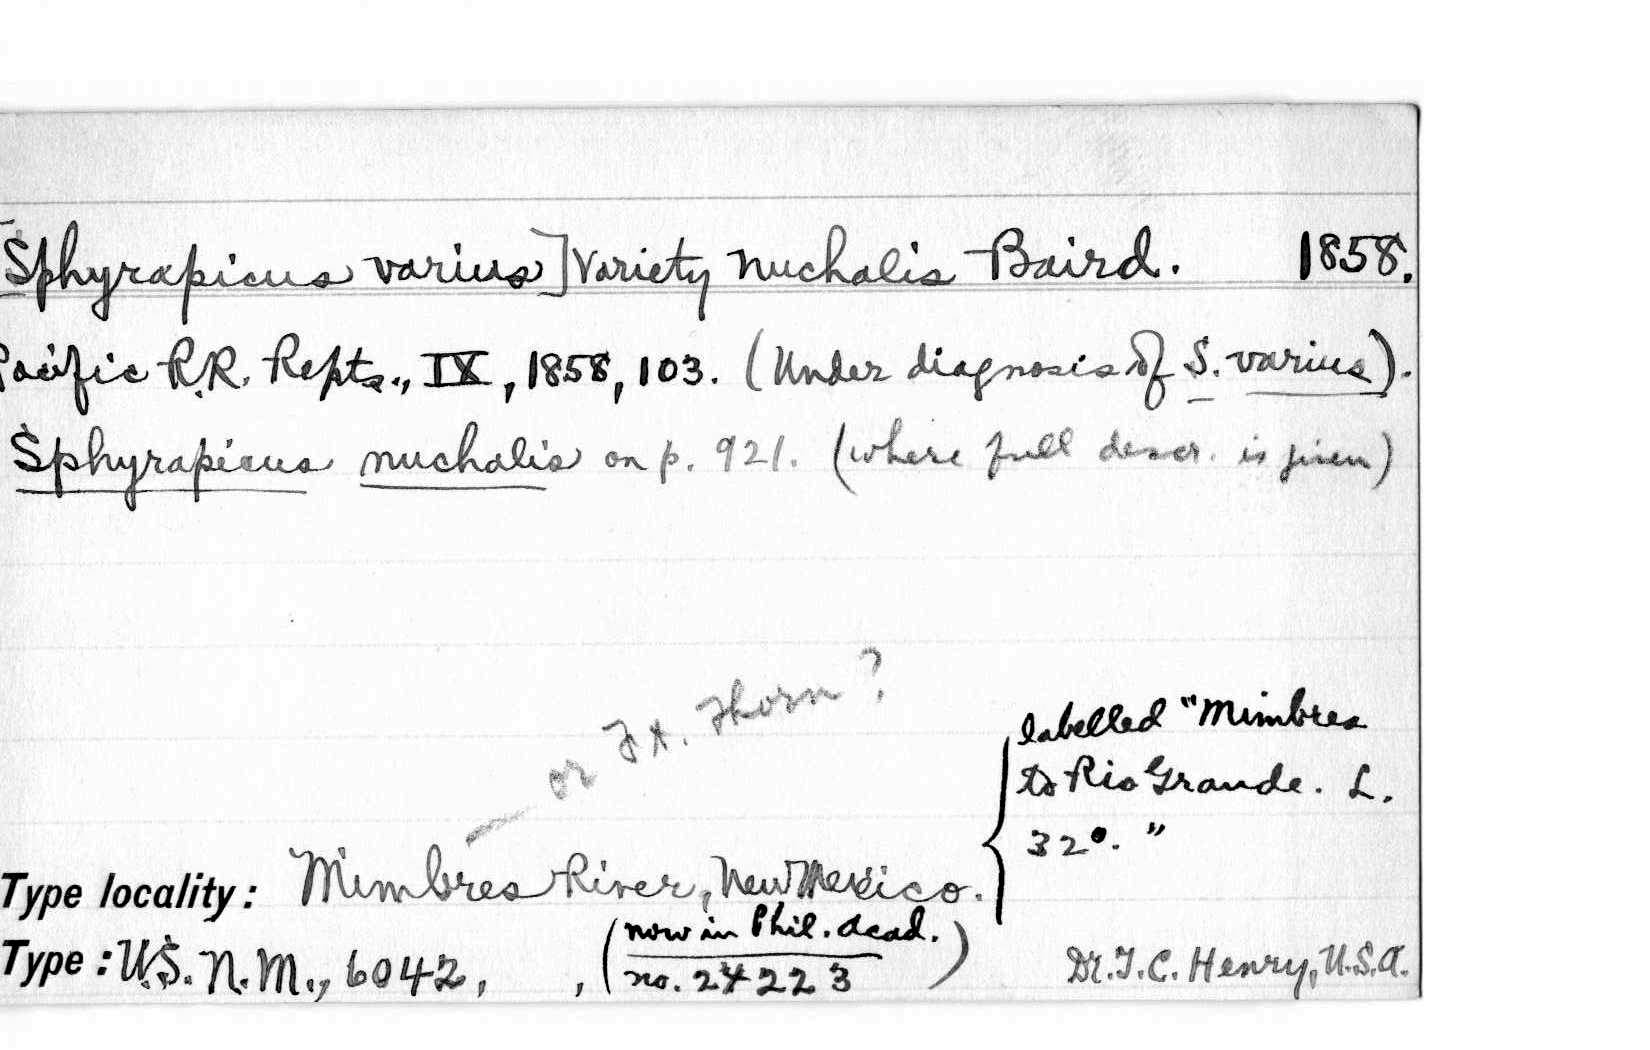 [Sphyrapicus varius] Variety nuchalis Baird. 1858.
Pacific R.R. Repts., IX, 1858, 103. (Under diagnosis of S. varius).
Sphyrapicus nuchalis on p. 921. (where full descr. is given)
— or Ft. Thorn?
labelled "Mimbres
to Rio Grande. L.
32°."
Type locality: Mimbres River, New Mexico.
(now in Phil. Acad.
Type: U.S.N.M., 6042, , no. 24223) Dr. T.C. Henry, U.S.A.